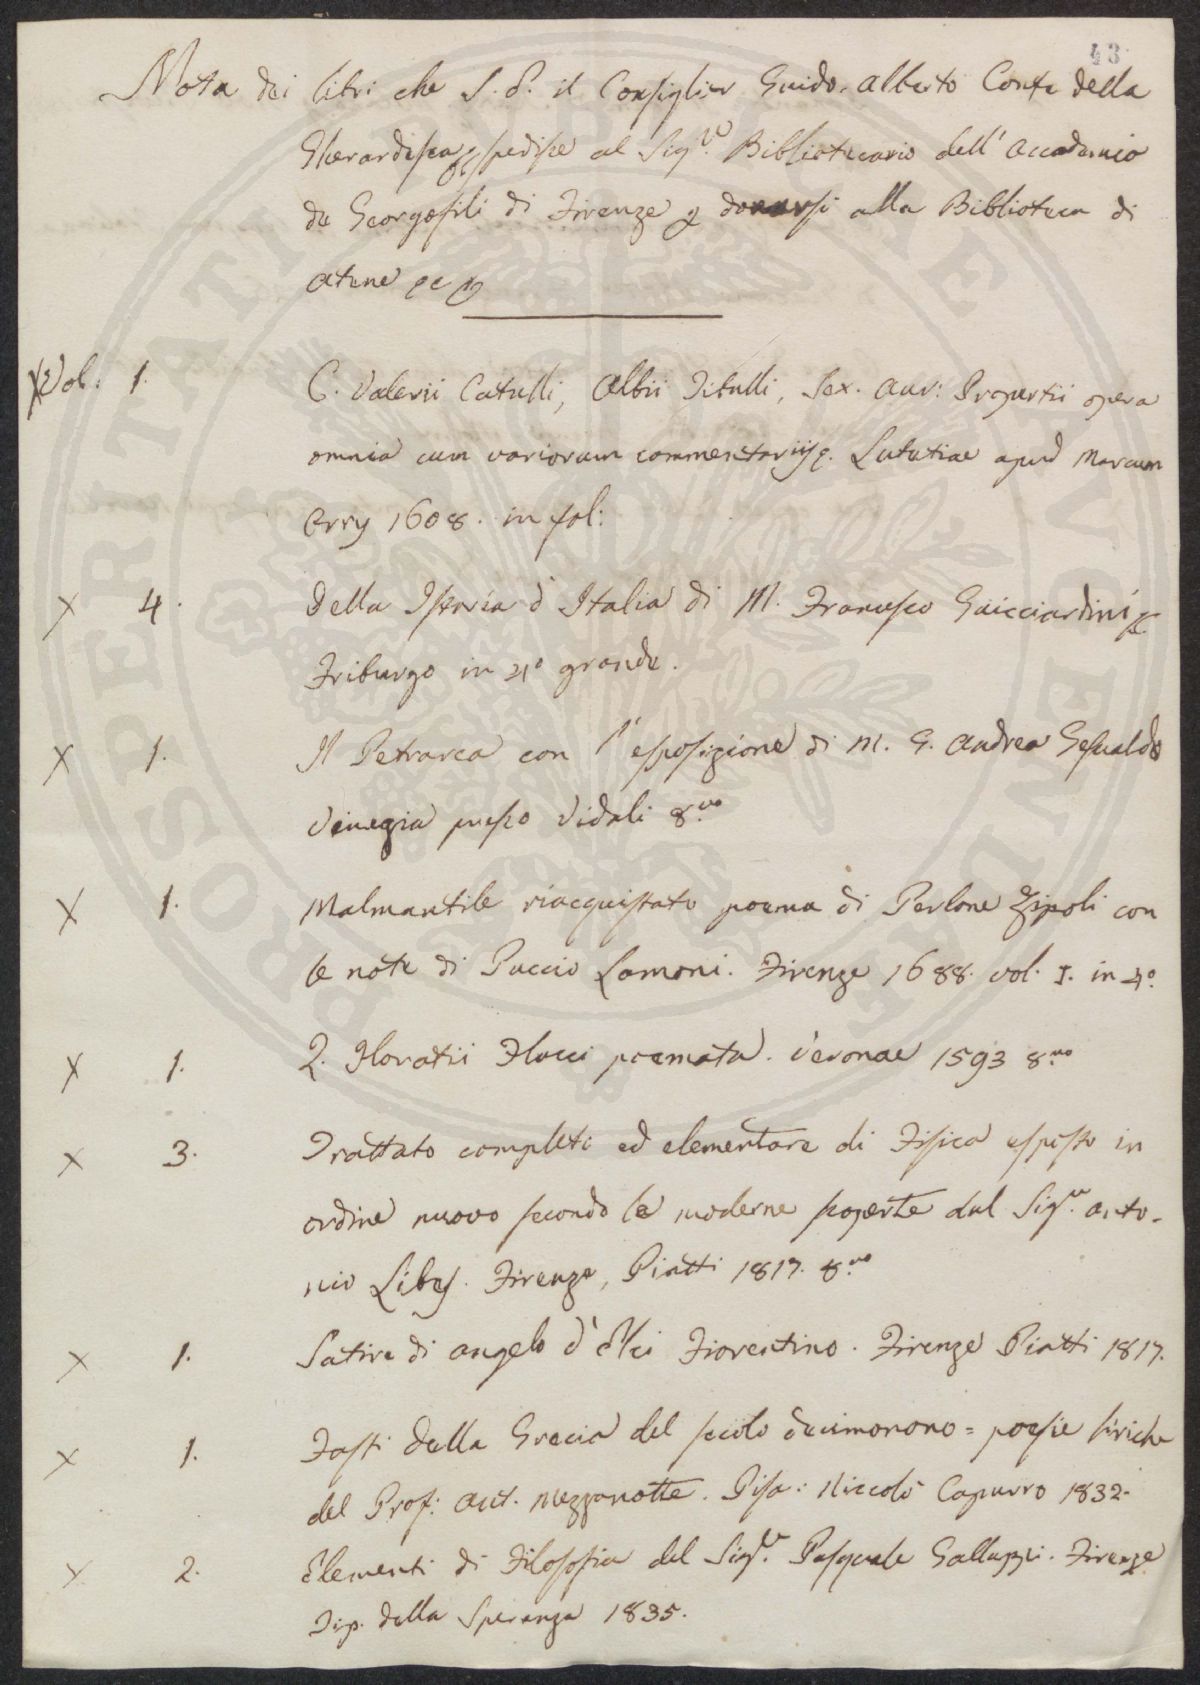 43
Nota dei libri che S. E. il Consiglier Guido Alberto Conte della
Gherardesca spedisce al Sig.re Bibliotecario dell' Accademia
de Georgofili di Firenze p donarsi alla Biblioteca di
Atene ec
X Vol. 1. C. Valerii Catulli, Albii Tibulli, Sex. Aur: Propertii opera
omnia cum variorum commentariis. Lutetiae apud Marcum
Orry 1608. in fol:
X 4. Della Istoria d'Italia di M. Francesco Guicciardini
Friburgo in 4o grande.
X 1. Il Petrarca con l'esposizione di M. G. Andrea Gesualdo
Vinegia presso Vidali 8.vo
X 1. Malmantile riacquistato poema di Perlone Zipoli con
le note di Puccio Lamoni. Firenze 1688. vol. I. in 4o.
X 1. Q. Horatii Flacci poemata. Veronae 1593 8.vo
X 3. Trattato completo ed elementare di Fisica esposto in
ordine nuovo secondo le moderne scoperte dal Sig.r Anto-
nio Libes. Firenze, Piatti 1817. 8.vo
X 1. Satire di Angelo d'Elci Fiorentino. Firenze Piatti 1817.
X 1. Fasti della Grecia del secolo decimonono = poesie liriche
del Prof: Ant. Mezzanotte. Pisa: Niccolò Capurro 1832.
X 2. Elementi di Filosofia del Sig.r Pasquale Galluppi. Firenze
Tip. della Speranza 1835.
PROSPERITATI PUBLICAE AUGENDAE